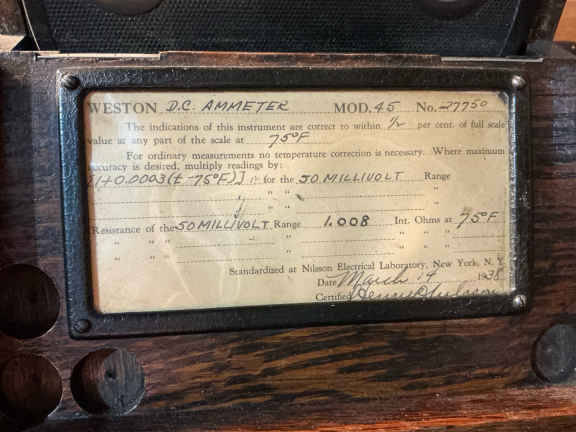 WESTON D.C. AMMETER MOD. 45 No. 27750
The indications of this instrument are correct to within 1/2 per cent. of full scale
value at any part of the scale at 75°F
For ordinary measurements no temperature correction is necessary. Where maximum
accuracy is desired, multiply readings by:
[1+0.0003(t-75°F)] for the 50 MILLIVOLT Range
" " " "
" " " "
Resistance of the 50 MILLIVOLT Range 1.008 Int. Ohms at 75°F
" " " " " "
" " " " " "
Standardized at Nilsson Electrical Laboratory, New York, N. Y.
Date March 14 1938
Certified Henry